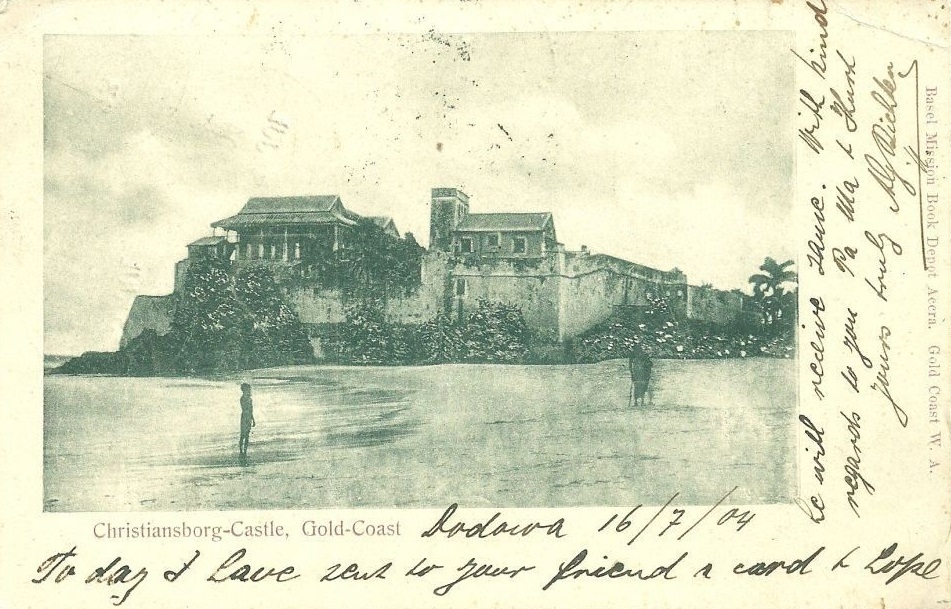 Christiansborg-Castle, Gold-Coast
Dodowa 16/7/04
To day I have sent to your friend a card & hope
he will receive same. With kind
regards to you Pa Ma &
yours truly
Basel Mission Book Depot Accra. Gold Coast W. A.